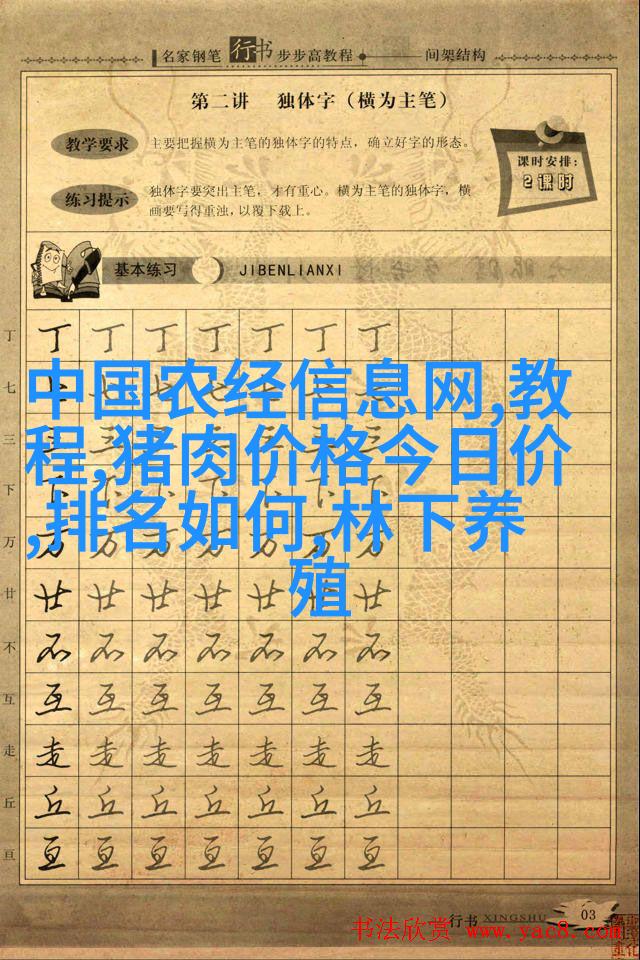 名家钢笔 行书 步步高教程 间架结构
第二讲 独体字（横为主笔）
教学要求 主要把握横为主笔的独体字的特点，确立好字的形态。
课时安排：
2课时
练习提示 独体字要突出主笔，才有重心。横为主笔的独体字，横
画要写得重浊，以覆下载上。
基本练习 JIBENLIANXI
丁 丁 丁 丁 丁 丁 丁 丁
七
中国农经信息网,教
三
程,猪肉价格今日价
下
,排名如何,林下养
万
殖
廿 廿 廿 廿 廿 廿 廿 廿
不 不 不 不 不 不 不 不
互 互 互 互 互 互 互 互
走 走 走 走 走 走 走 走
丘 丘 丘 丘 丘 丘 丘 丘
亘 亘 亘 亘 亘 亘 亘 亘
行书 XINGSHU 03
书法欣赏 www.yac8.com